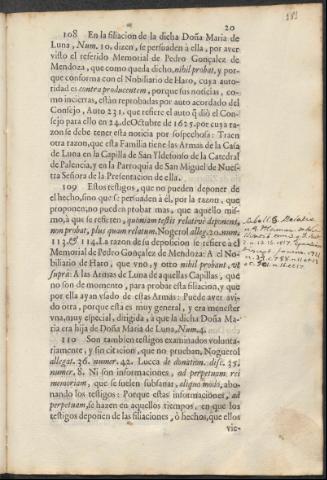 20
108 En la filiacion de la dicha Doña Maria de
Luna, Num. 10. dizen, se persuaden à ella, por aver
visto el referido Memorial de Pedro Gonçalez de
Mendoza, que como queda dicho, nihil probat, y por-
que conforma con el Nobiliario de Haro, cuya auto-
ridad es contra producentem, porque sus noticias, co-
mo inciertas, estàn reprobadas por auto acordado del
Consejo, Auto 231. que refiere el auto q̃ diò el Con-
sejo para ello en 24. de Octubre de 1625. por cuya ra-
zon se debe tener esta noticia por sospechosa: Traen
otra razon, que esta Familia tiene las Armas de la Casa
de Luna en la Capilla de San Ildefonso de la Catedral
de Palencia, y en la Parroquia de San Miguel de Nues-
tra Señora de la Presentacion de ella.
109 Estos testigos, que no pueden deponer de
el hecho, sino que se persuaden à èl, por la razon, que
proponen, no pueden probar mas, que aquello mis-
mo, à que se refieren, quoniam testis relativè deponens,
non probat, plus quam relatum. Noguerol alleg. 20. num.
113. & 114. La razon de su deposicion se refiere à el
Memorial de Pedro Gonçalez de Mendoza: A el No-
biliario de Haro, que vno, y otro nihil probant, vt
suprà: A las Armas de Luna de aquellas Capillas, que
no son de momento, para probar esta filiacion, y que
por ella ayan vsado de estas Armas: Puede aver avi-
do otra, porque esta es muy general, y era menester
vna, muy especial, dirigida, à que la dicha Doña Ma-
ria era hija de Doña Maria de Luna, Num. 4.
110 Son tambien testigos examinados volunta-
riamente, y sin citacion, que no prueban, Noguerol
allegat. 36. numer. 42. Lucca de donation. disc. 35.
numer. 8. Ni son informaciones, ad perpetuam rei
memoriam, que se suelen subsanar, aliquo modo, abo-
nando los testigos: Porque estas informaciones, ad
perpetuam, se hazen en aquellos tiempos, en que los
testigos deponen de las filiaciones, ò hechos, que ellos
vie-